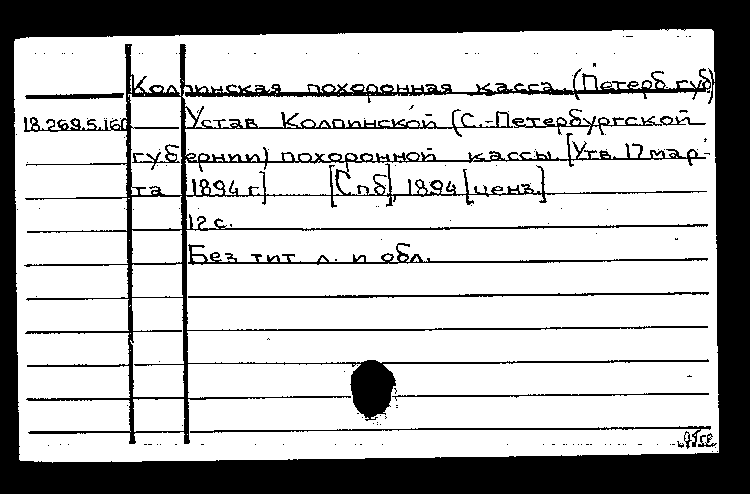 Колпинская похоронная касса (Петерб. губ)
18.269.5.160 Устав Колпинской (С.-Петербургской
губернии) похоронной кассы. [Утв. 17 мар-
та 1894 г.] [Спб], 1894 [ценз.]
12 с.
Без тит. л. и обл.